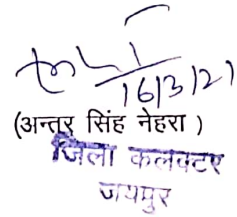 16/3/21
(अन्तर सिंह नेहरा )
जिला कलक्टर
जयपुर